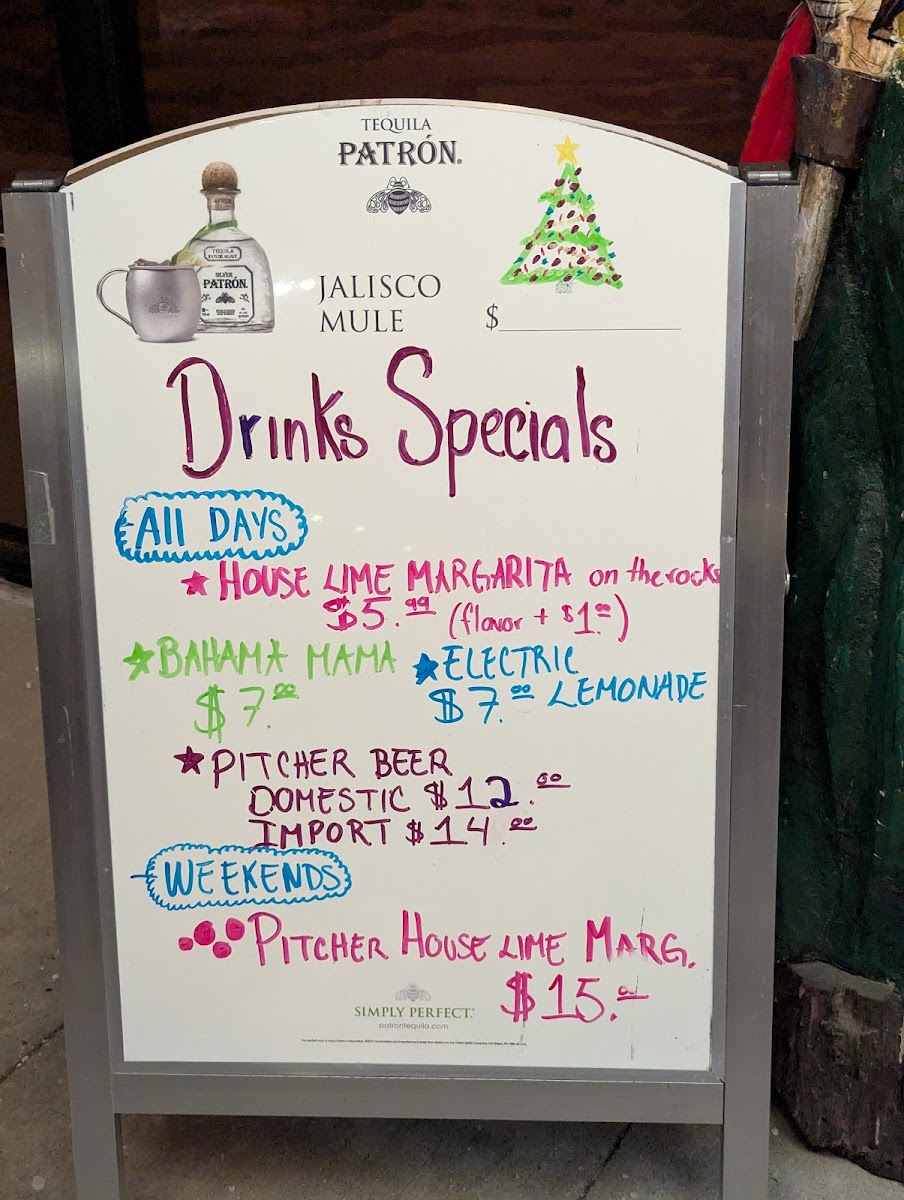 TEQUILA
PATRÓN.
TEQUILA
SILVER
PATRÓN.
JALISCO
MULE
$
Drinks Specials
All DAYS
HOUSE LIME MARGARITA on the rocks
$5.99 (flavor + $1.00)
BAHAMA MAMA
$7.00
ELECTRIC
$7.00 LEMONADE
PITCHER BEER
DOMESTIC $12.00
IMPORT $14.00
WEEKENDS
PITCHER HOUSE LIME MARG.
$15.00
SIMPLY PERFECT.
patrontequila.com